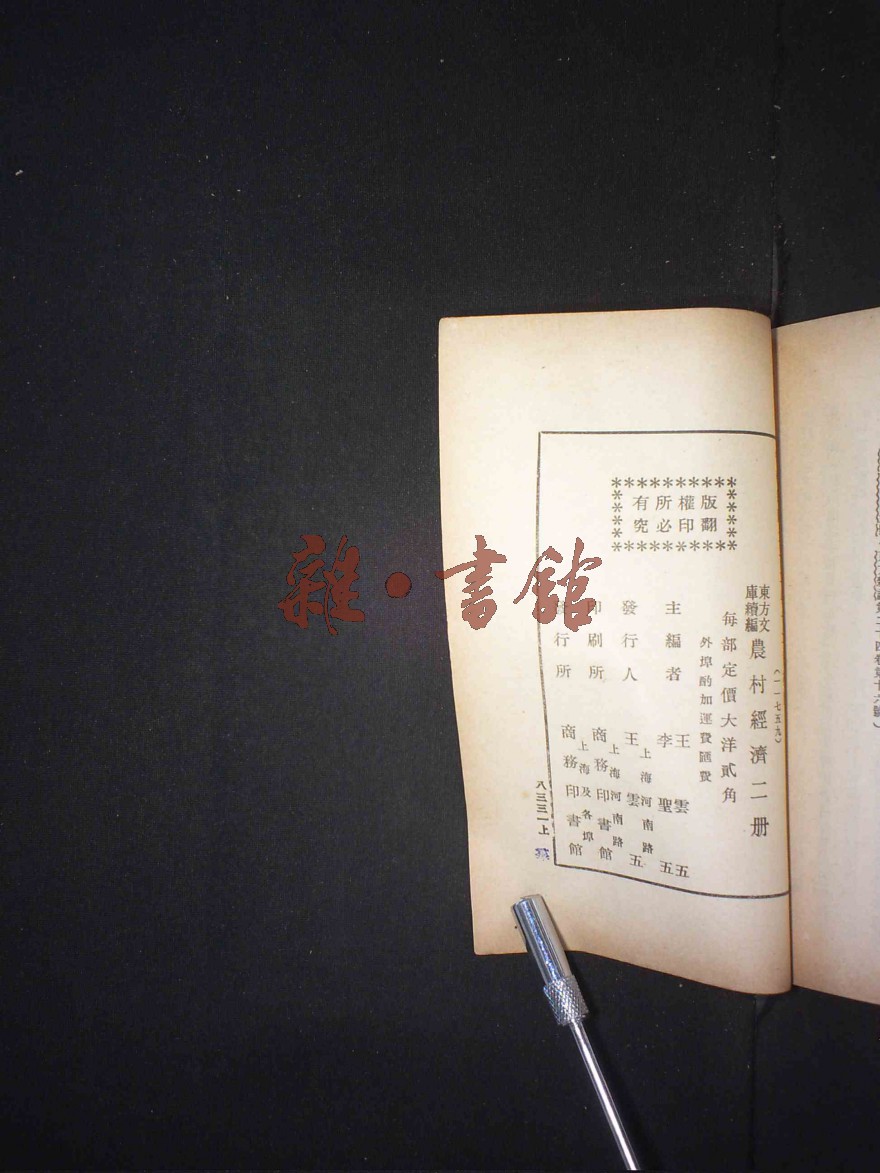 東方文
庫續編
農村經濟二册
(一一七五九)
每部定價大洋貳角
外埠酌加運費匯費
版權所有
翻印必究
主編者
王雲五
李聖五
發行人
上海河南路
王雲五
印刷所
上海河南路
商務印書館
發行所
上海及各埠
商務印書館
八三三一上
雜·書館